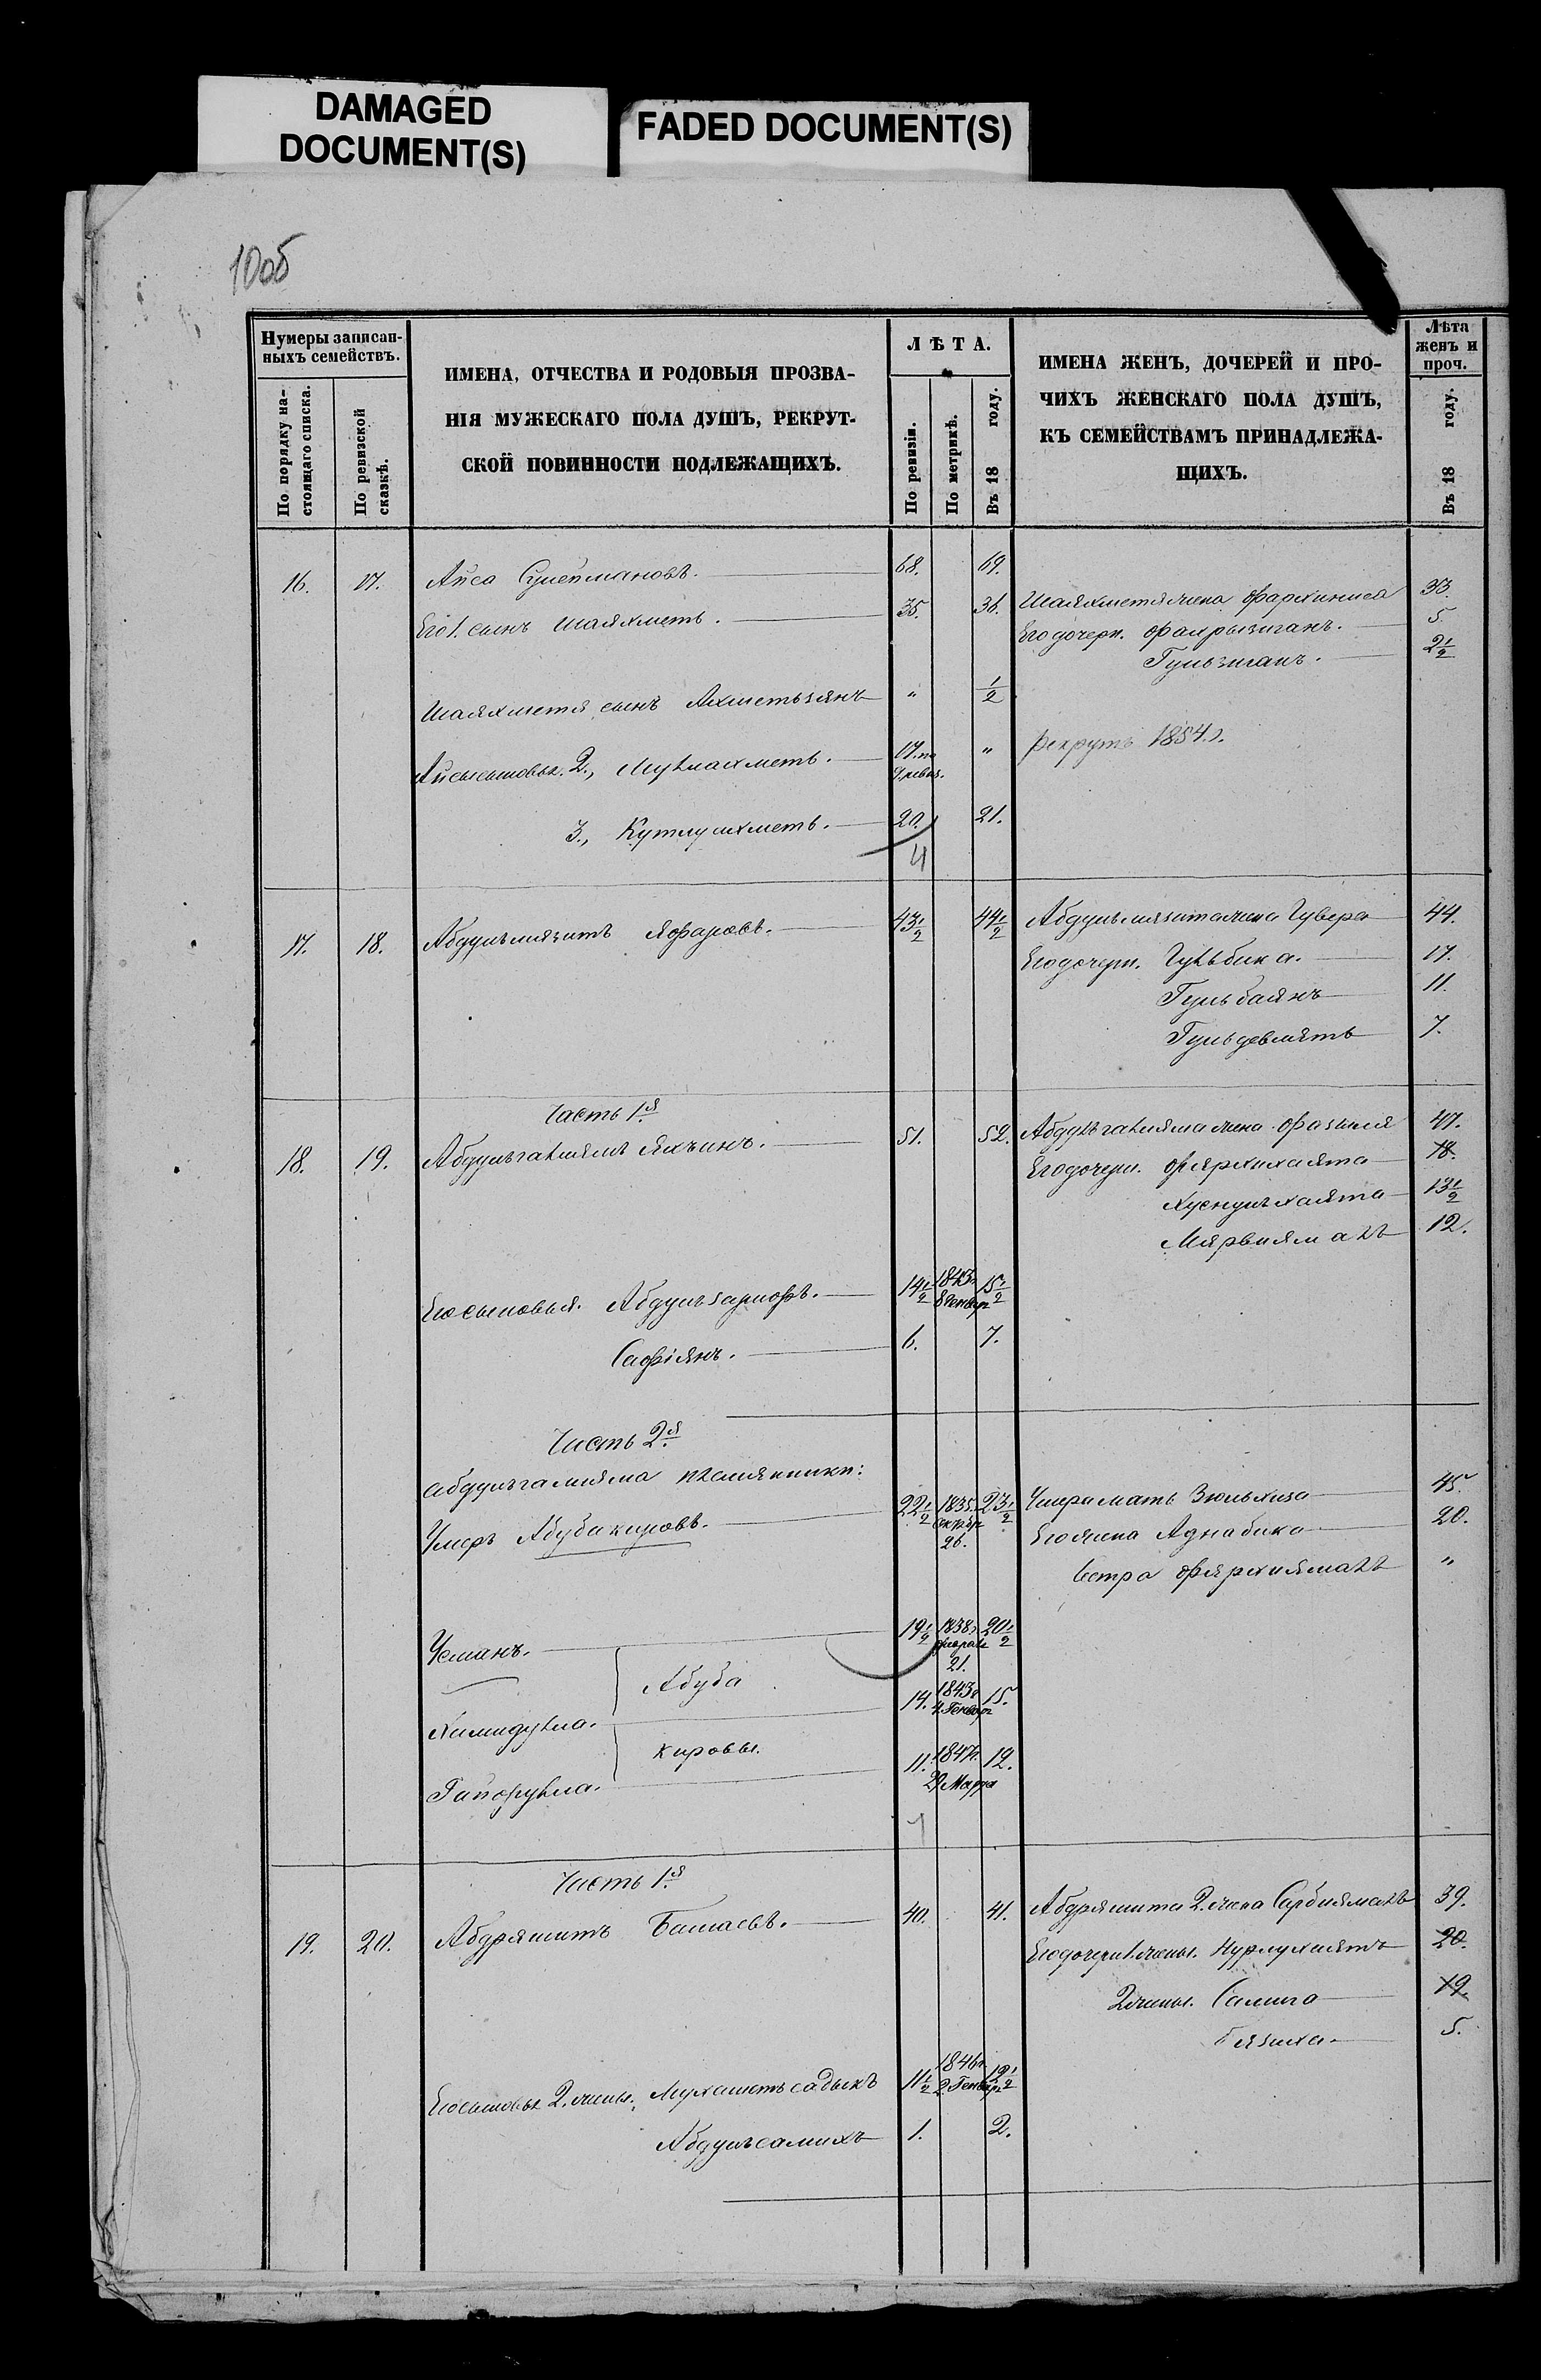 DAMAGED
DOCUMENT(S)
FADED DOCUMENT(S)
10об
Нумеры записан-
ныхъ семействъ.
По порядку на-
стоящаго списка.
По ревизской
сказкѣ.
ИМЕНА, ОТЧЕСТВА И РОДОВЫЯ ПРОЗВА-
НІЯ МУЖЕСКАГО ПОЛА ДУШЪ, РЕКРУТ-
СКОЙ ПОВИННОСТИ ПОДЛЕЖАЩИХЪ.
ЛѢТА.
По ревизіи.
По метрикѣ.
Въ 18 году.
ИМЕНА ЖЕНЪ, ДОЧЕРЕЙ И ПРО-
ЧИХЪ ЖЕНСКАГО ПОЛА ДУШЪ,
КЪ СЕМЕЙСТВАМЪ ПРИНАДЛЕЖА-
ЩИХЪ.
Лѣта
женъ и
проч.
Въ 18 году.
16. 17. Айса Сулеймановъ. 68. 69.
Его 1. сынъ Шаяхметь. 35. 36. Шаяхметя жена Фархиниса 33.
Его дочери. Фахрызиганъ. 5
Гульзиганъ. 2 1/2
Шаяхметя сынъ Ахметьзянъ " 1/2
Айсы сыновья. 2., Муллахметь. 17. по 9 ревиз. " рекрутъ 1854 г.
3., Кутлуахметь. 20. 21.
4
17. 18. Абдулъмязитъ Яфаровъ. 43 1/2 44 1/2 Абдулъмязита жена Гувера 44.
Его дочери. Гульбика. 17.
Гульбаянъ 11.
Гульдевлять 7.
Часть 1я
18. 19. Абдулъгалямъ Яхъинъ. 51. 52. Абдулъгаляма жена Фазыля 47.
Его дочери. Фярхихаята 18.
Хуснулъхаята 13 1/2
Мярвиямалъ 12.
Его сыновья. Абдулъзарифъ. 14 1/2 1843 г. 8 Генваря 15 1/2
Сафіянъ. 6. 7.
Часть 2я
Абдулъгаляма племянники:
Умеръ Абубакировъ. 22 1/2 1835. 26. 23 1/2 Умера мать Зюльхиза 45.
Его жена Аднабика 20.
Сестра Фярхиямалъ "
Усманъ. 19 1/2 1838 г. Февраля 21. 20 1/2
Абуба
Хамидулла. 14. 1843 г. 4. Генваря 15.
кировы.
Гапфрулла. 11. 1847 г. 29 Марта 12.
Часть 1я
19. 20. Абдряшитъ Башаевъ. 40. 41. Абдряшита 2. жена Сарбиямалъ 39.
Его дочери 1 жены. Нурлухаятъ 20.
2 жены. Салиха 19.
Бязиха. 5.
Его сыновья 2. жены., Мухаметьсадыкъ 11 1/2 1846 г. 2 Генваря 12 1/2
Абдулъсалихъ 1. 2.